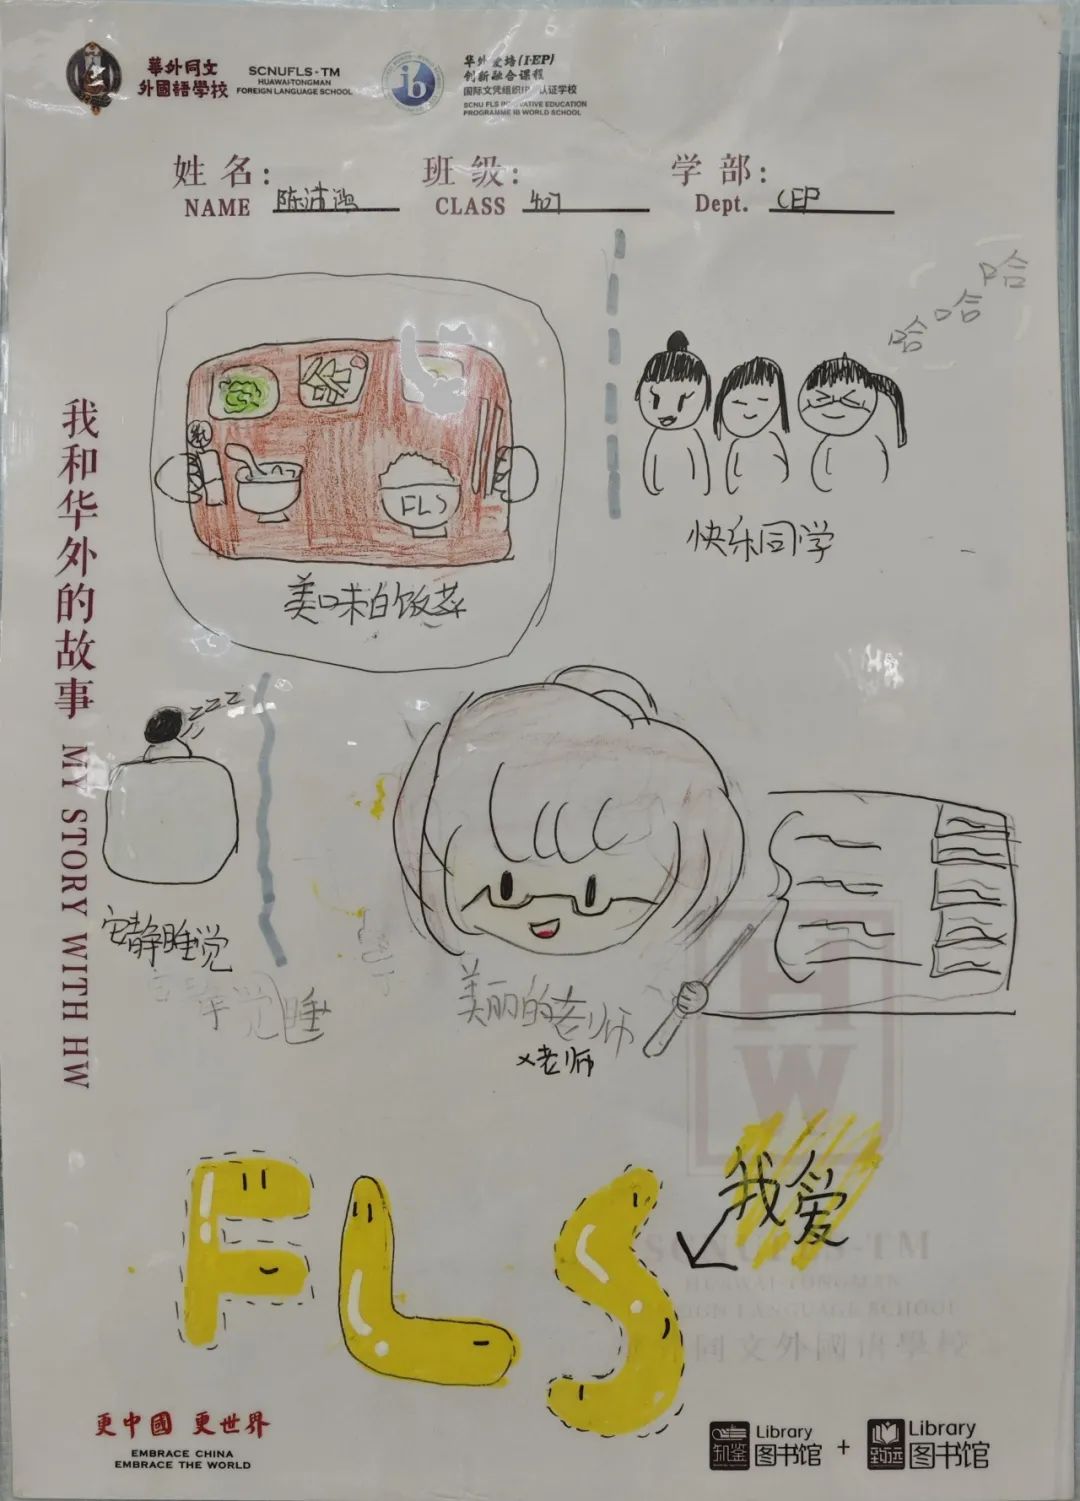 華外同文
外國語學校
SCNUFLS-TM
HUAWAI-TONGMAN
FOREIGN LANGUAGE SCHOOL
ib
华外爱培(I·EP)
创新融合课程
国际文凭组织IB 认证学校
SCNU FLS INNOVATIVE EDUCATION
PROGRAMME IB WORLD SCHOOL
姓名:
NAME 陈沛鸿
班级:
CLASS 407
学部:
Dept. CEP
我和华外的故事 MY STORY WITH HW
哈哈哈
FLS
美味的饭菜
快乐同学
zzz
安静睡觉
觉睡
美丽的老师
x老师
HW
我爱
FLS
SCNUFLS-TM
HUAWAI-TONGMAN
FOREIGN LANGUAGE SCHOOL
同文外國語學校
更中國 更世界
EMBRACE CHINA
EMBRACE THE WORLD
知鉴
Library
图书馆
+
致远
Library
图书馆